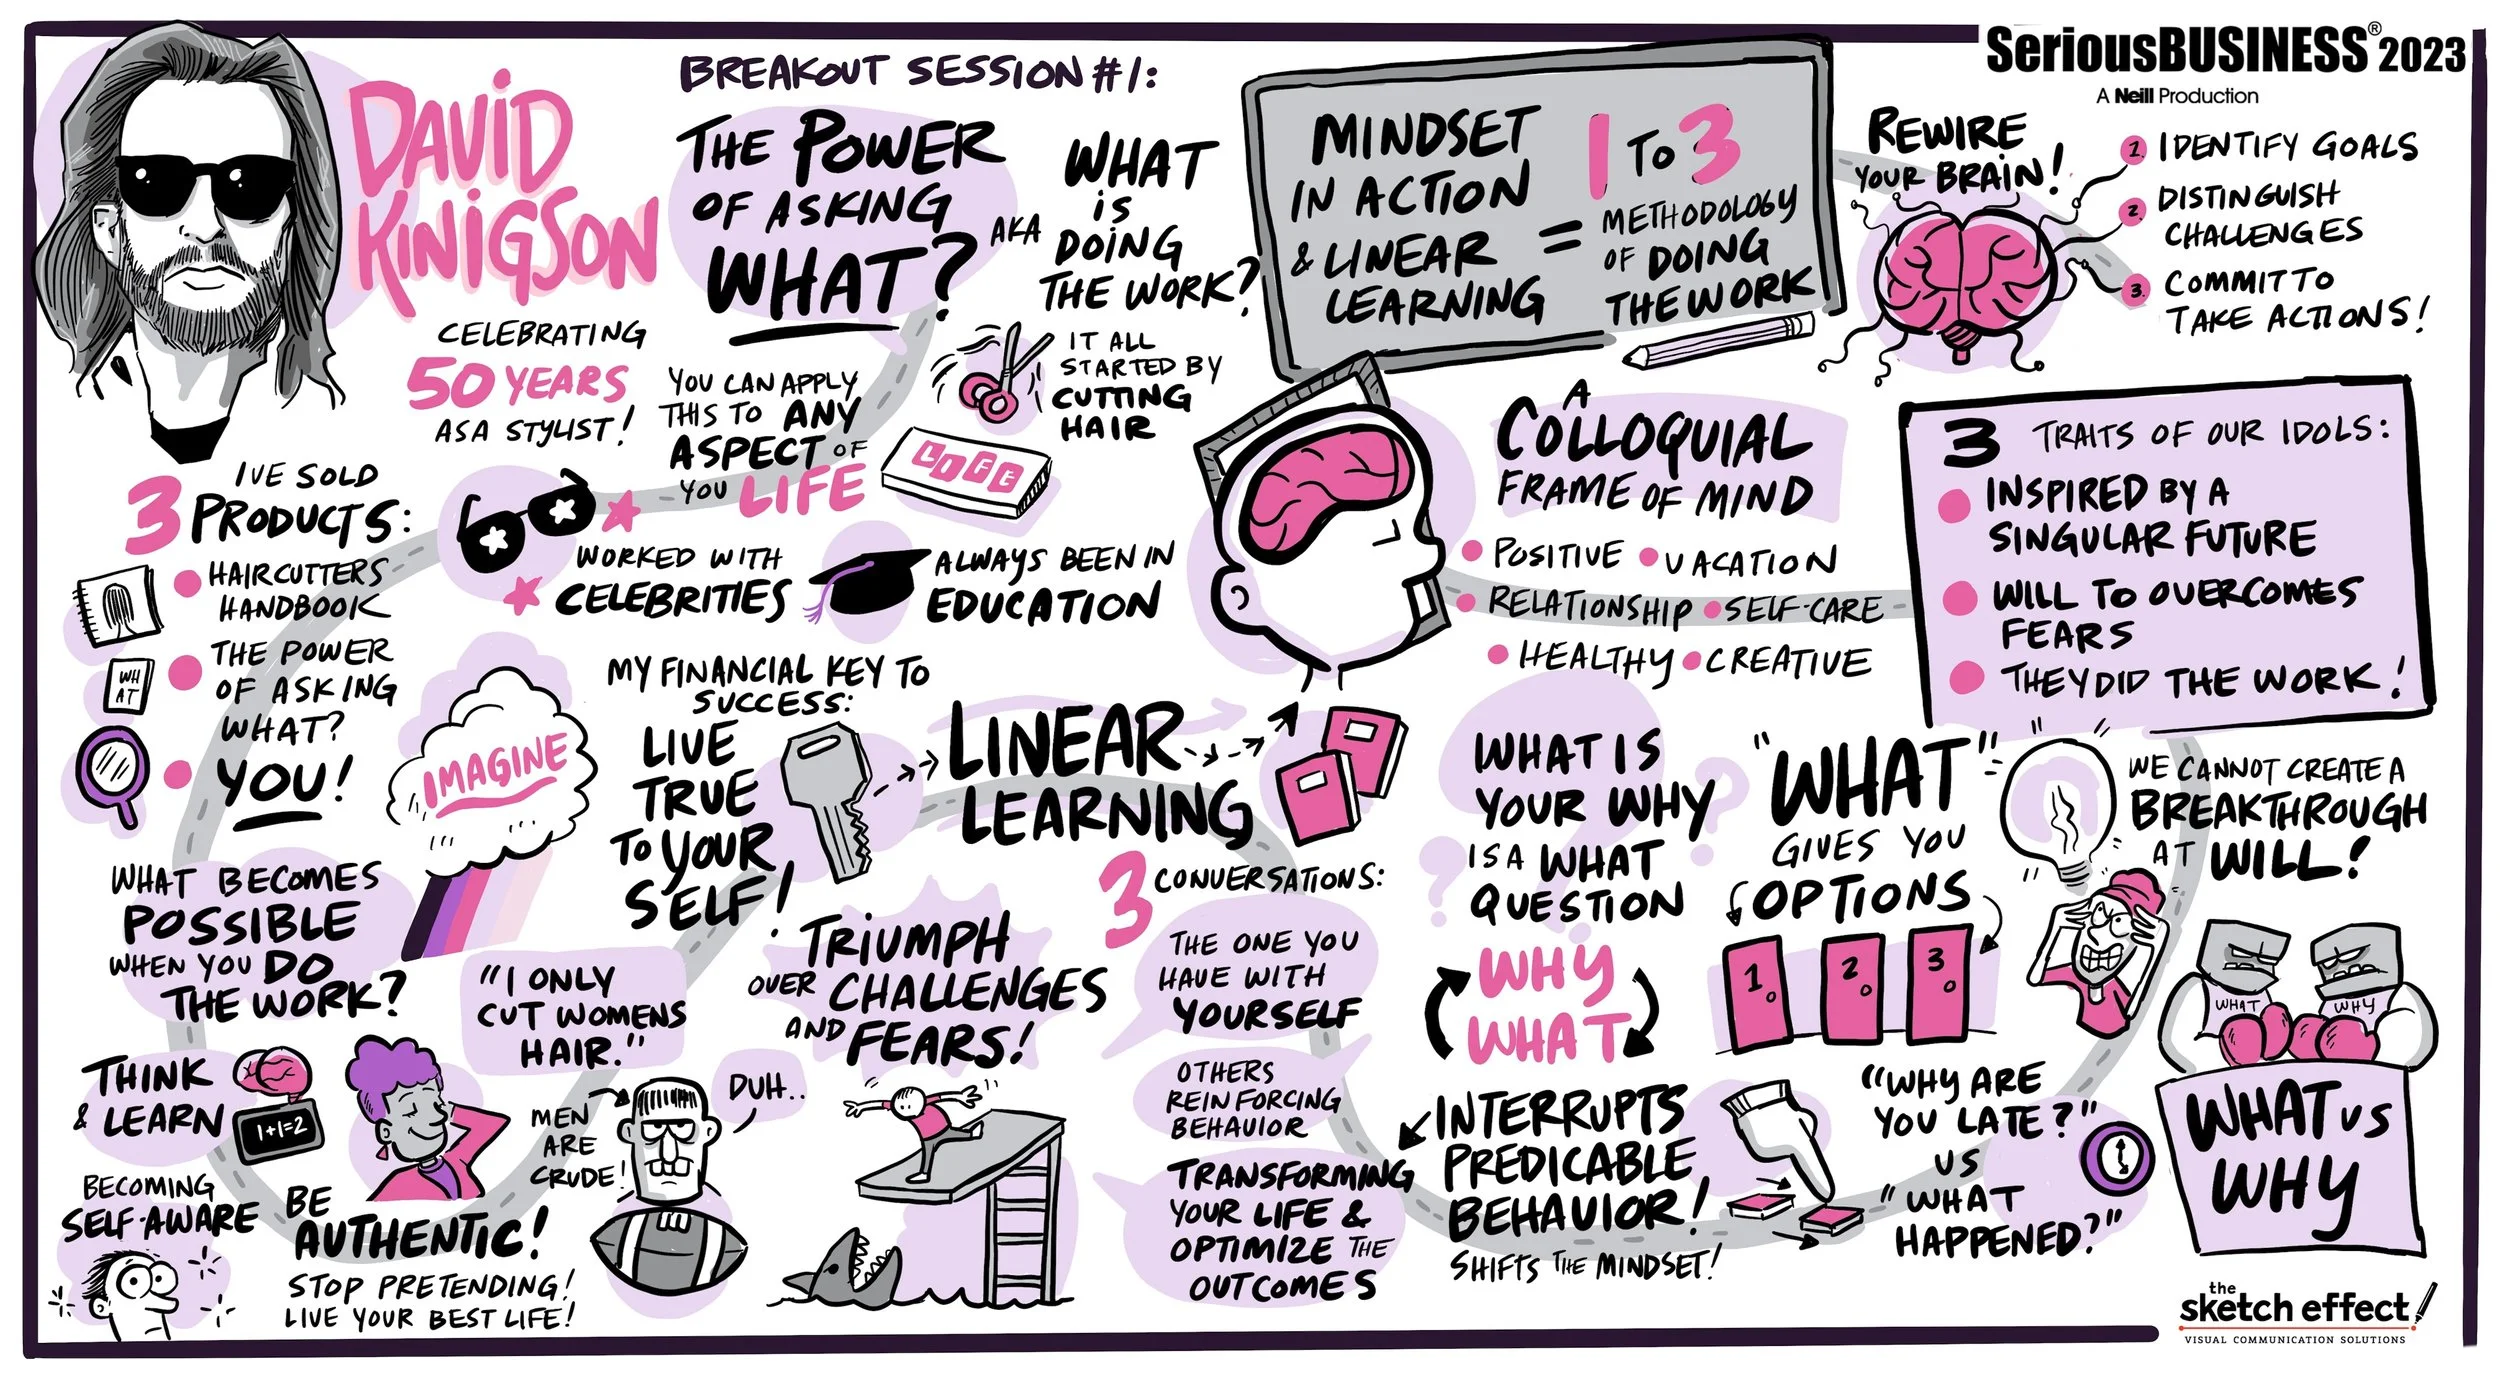 SeriousBUSINESS® 2023
A Neill Production
DAVID
KINIGSON
CELEBRATING
50 YEARS
AS A STYLIST!
BREAKOUT SESSION #1:
THE POWER
OF ASKING
WHAT?
AKA
WHAT
IS
DOING
THE WORK?
YOU CAN APPLY
THIS TO ANY
ASPECT OF
YOU LIFE
LIFE
IT ALL
STARTED BY
CUTTING
HAIR
I'VE SOLD
3 PRODUCTS:
HAIRCUTTERS
HANDBOOK
WH
AT
THE POWER
OF ASKING
WHAT?
YOU!
WORKED WITH
CELEBRITIES
ALWAYS BEEN IN
EDUCATION
IMAGINE
WHAT BECOMES
POSSIBLE
WHEN YOU DO
THE WORK?
THINK
& LEARN
1+1=2
BECOMING
SELF-AWARE
BE
AUTHENTIC!
STOP PRETENDING!
LIVE YOUR BEST LIFE!
"I ONLY
CUT WOMENS
HAIR."
MEN
ARE
CRUDE!
DUH..
MY FINANCIAL KEY TO
SUCCESS:
LIVE
TRUE
TO YOUR
SELF!
TRIUMPH
OVER CHALLENGES
AND FEARS!
LINEAR
LEARNING
3 CONVERSATIONS:
THE ONE YOU
HAVE WITH
YOURSELF
OTHERS
REINFORCING
BEHAVIOR
TRANSFORMING
YOUR LIFE &
OPTIMIZE THE
OUTCOMES
MINDSET
IN ACTION
& LINEAR
LEARNING
=
1 TO 3
METHODOLOGY
OF DOING
THE WORK
REWIRE
YOUR BRAIN!
1. IDENTIFY GOALS
2. DISTINGUISH
CHALLENGES
3. COMMIT TO
TAKE ACTIONS!
A
COLLOQUIAL
FRAME OF MIND
POSITIVE VACATION
RELATIONSHIP SELF-CARE
HEALTHY CREATIVE
3 TRAITS OF OUR IDOLS:
INSPIRED BY A
SINGULAR FUTURE
WILL TO OVERCOMES
FEARS
THEY DID THE WORK!
WHAT IS
YOUR WHY
IS A WHAT
QUESTION
WHY
WHAT
INTERRUPTS
PREDICABLE
BEHAVIOR!
SHIFTS THE MINDSET!
"WHAT"
GIVES YOU
OPTIONS
1.
2.
3.
WE CANNOT CREATE A
BREAKTHROUGH
AT WILL!
"WHY ARE
YOU LATE?"
VS
"WHAT
HAPPENED?"
WHAT
WHY
WHAT VS
WHY
the
sketch effect
VISUAL COMMUNICATION SOLUTIONS